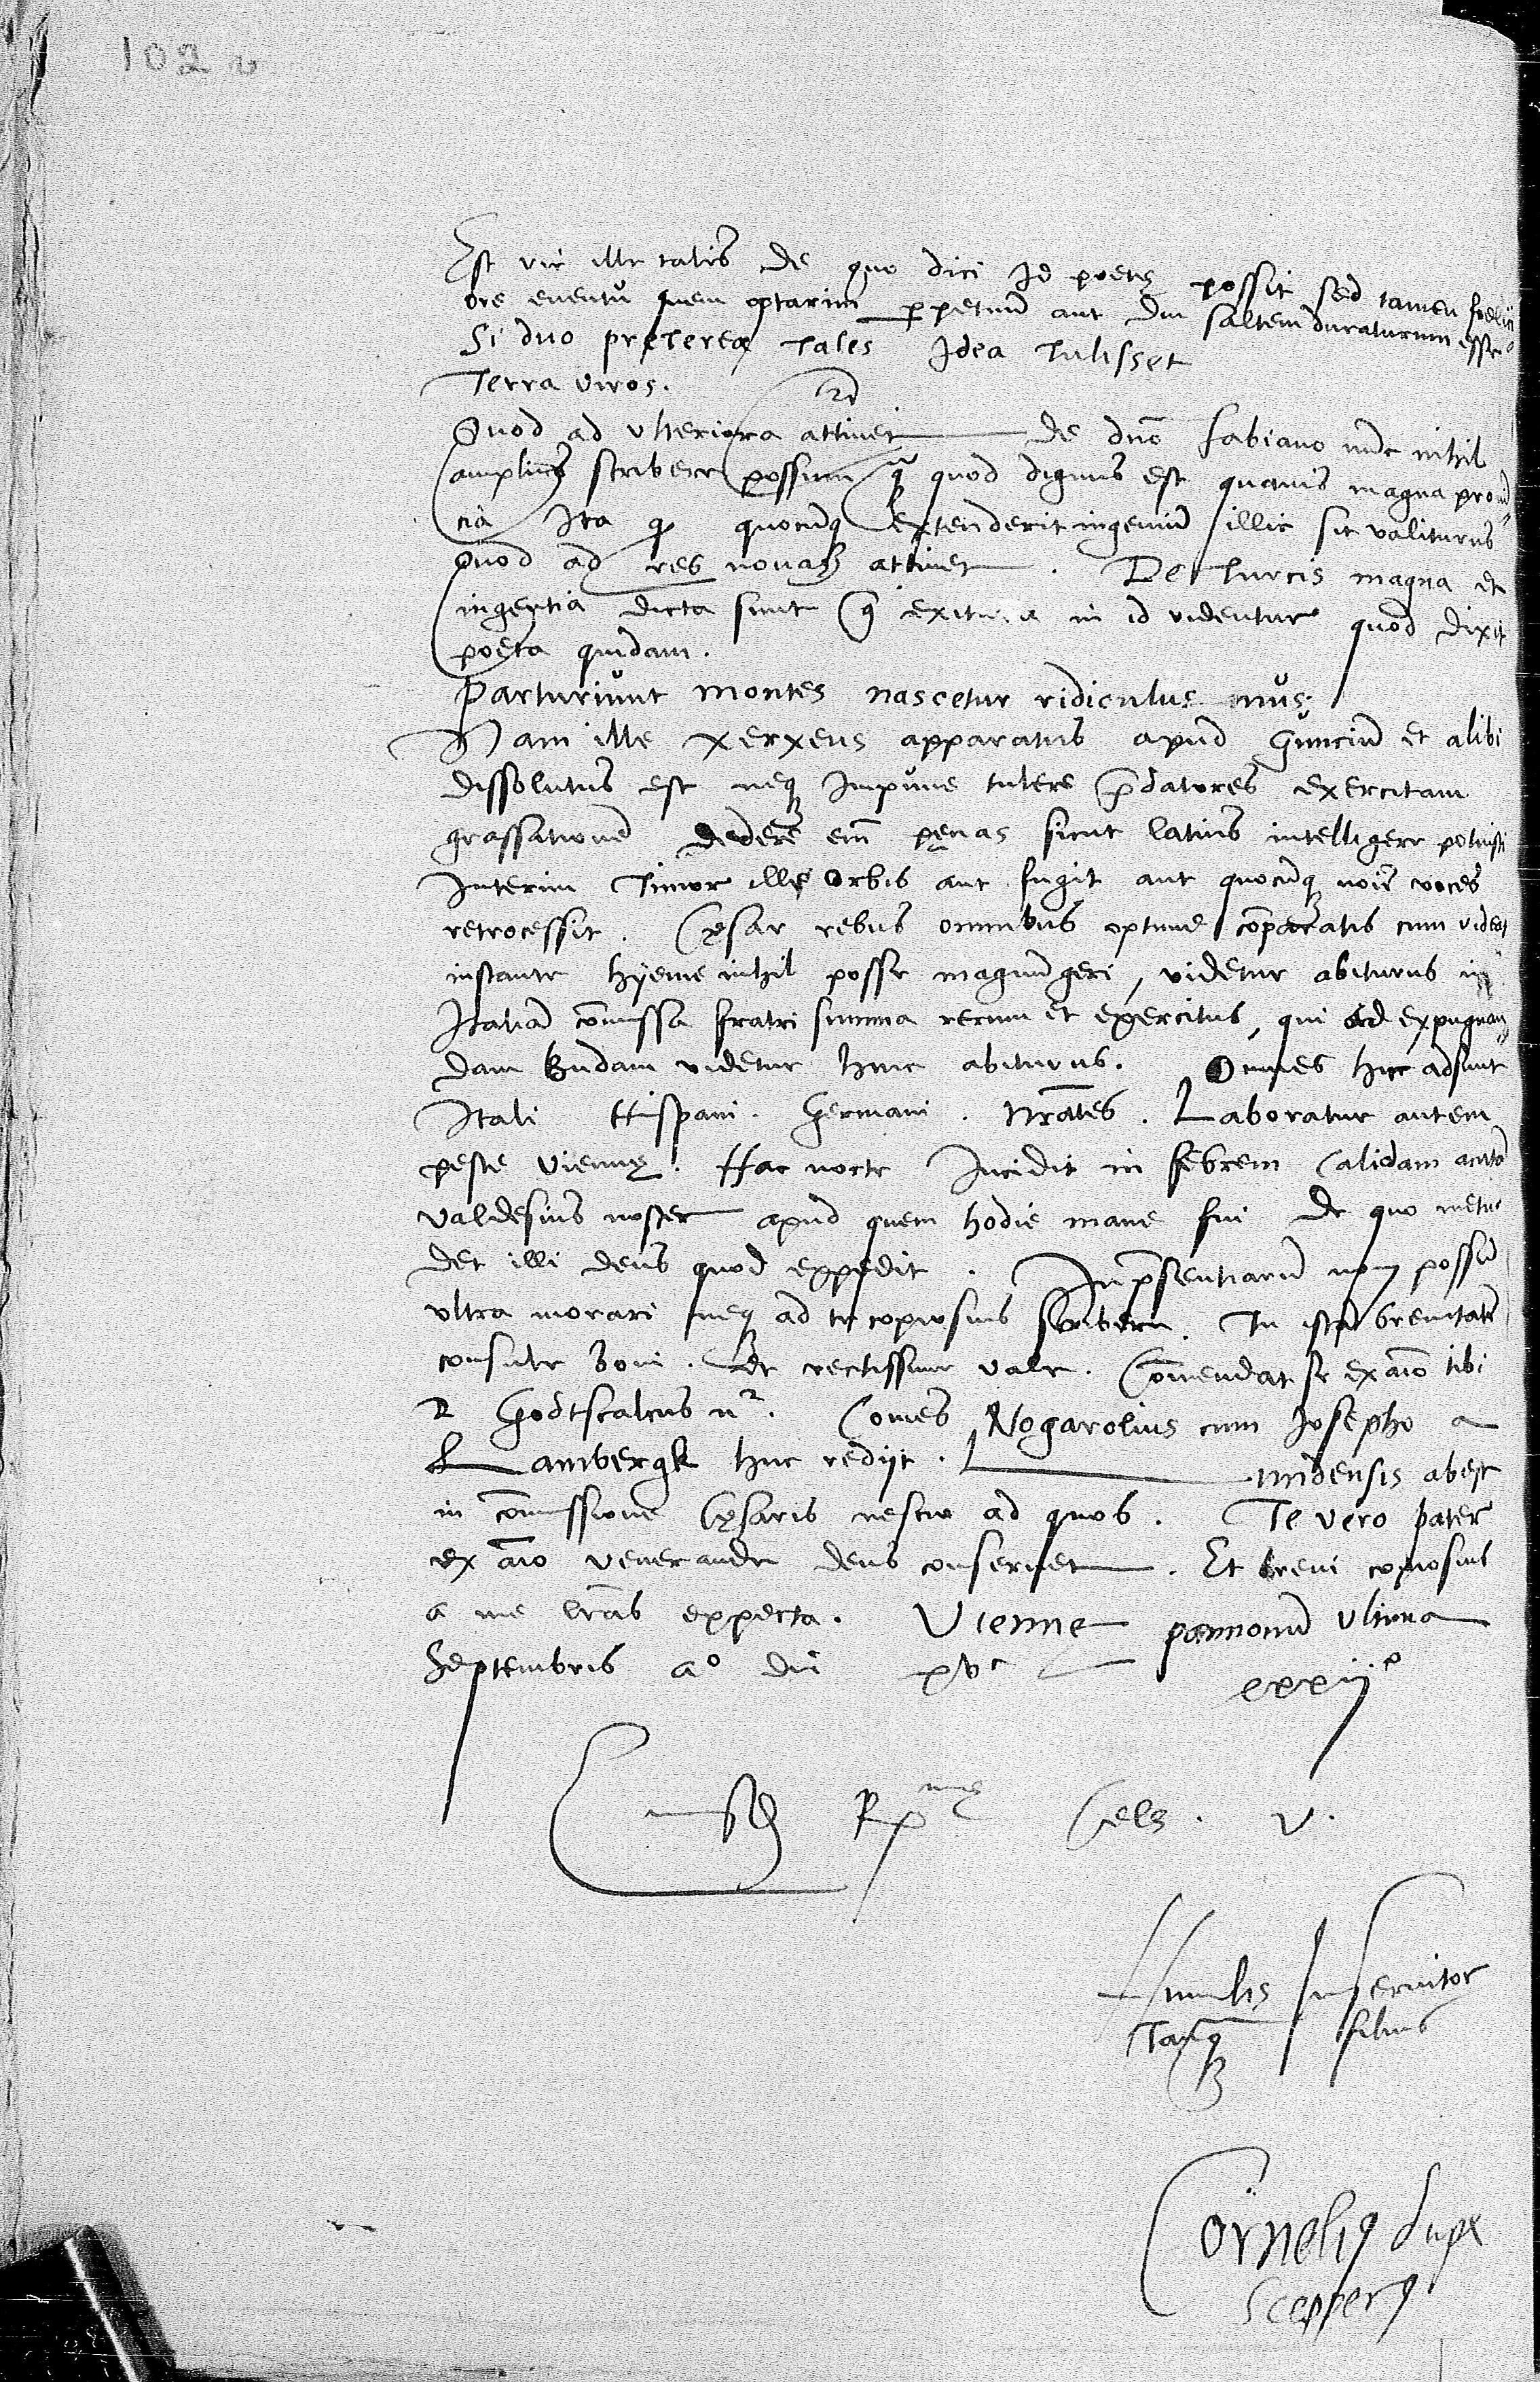 102 v
Est vir ille talis de quo dici id poetę possit sed tamen foelici
ore eventu quem optarim perpetuum aut diu saltem duraturum esse
Si duo pręterea tales Idea tulisset
Terra viros.
Quod ad ulteriora attinet de dno Fabiano nunc nihil
amplius scribere possum quod dignus est quavis magna provin
cia Ita quocunq extenderit ingenium illic sit valiturus
Quod ad res novas attinet. De Turcis magna et
ingentia dicta sunt exitura in id videntur quod dixit
poeta quidam.
Parturiunt montes nascetur ridiculus mus:
Nam ille Xerxeus apparatus apud Guncium et alibi
dissolutus est neq impune tulere prędatores exercitam
grassationem dedere eni pęnas sicut latius intelligere potuisti
Interim Timor ille orbis aut fugit aut quocunq voces
retrocessit. Cęsar rebus omnibus optime comparatis cum videat
instante hyeme nihil posse magnum geri, videtur abiturus in
Italiam commissa fratri summa rerum et exercitus, qui ad expugnan
dam Budam videtur hinc abiturus. Omnes hic adsunt
Itali Hispani. Germani. nrates. Laboratur autem
peste Viennę. Hac nocte Incidit in febrem calidam acutam
Valdesius noster apud quem hodie mane fui de quo metuo
det illi deus quod expedit. In prsentiarum non possum
ultra morari neq ad te copiosius scribere. Tu istam brevitatem
consule boni. Et rectissime vale. Commendat se ex aio tibi
D Godtscalcus nr. Comes Nogarolius cum Josepho a
Lambergk huc redijt. L undensis abest
in commissione Cęsaris nescio ad quos. Te vero pater
ex aio venerande deus conservet. Et brevi copiosius
a me lras expecta. Vienne pannonum ultima
Septembris a° dni xvc xxxij°
Eiusd Rxme Cels. V.
Humilis Inservitor
Tanq filius
Cornelius dupx
Scepperus